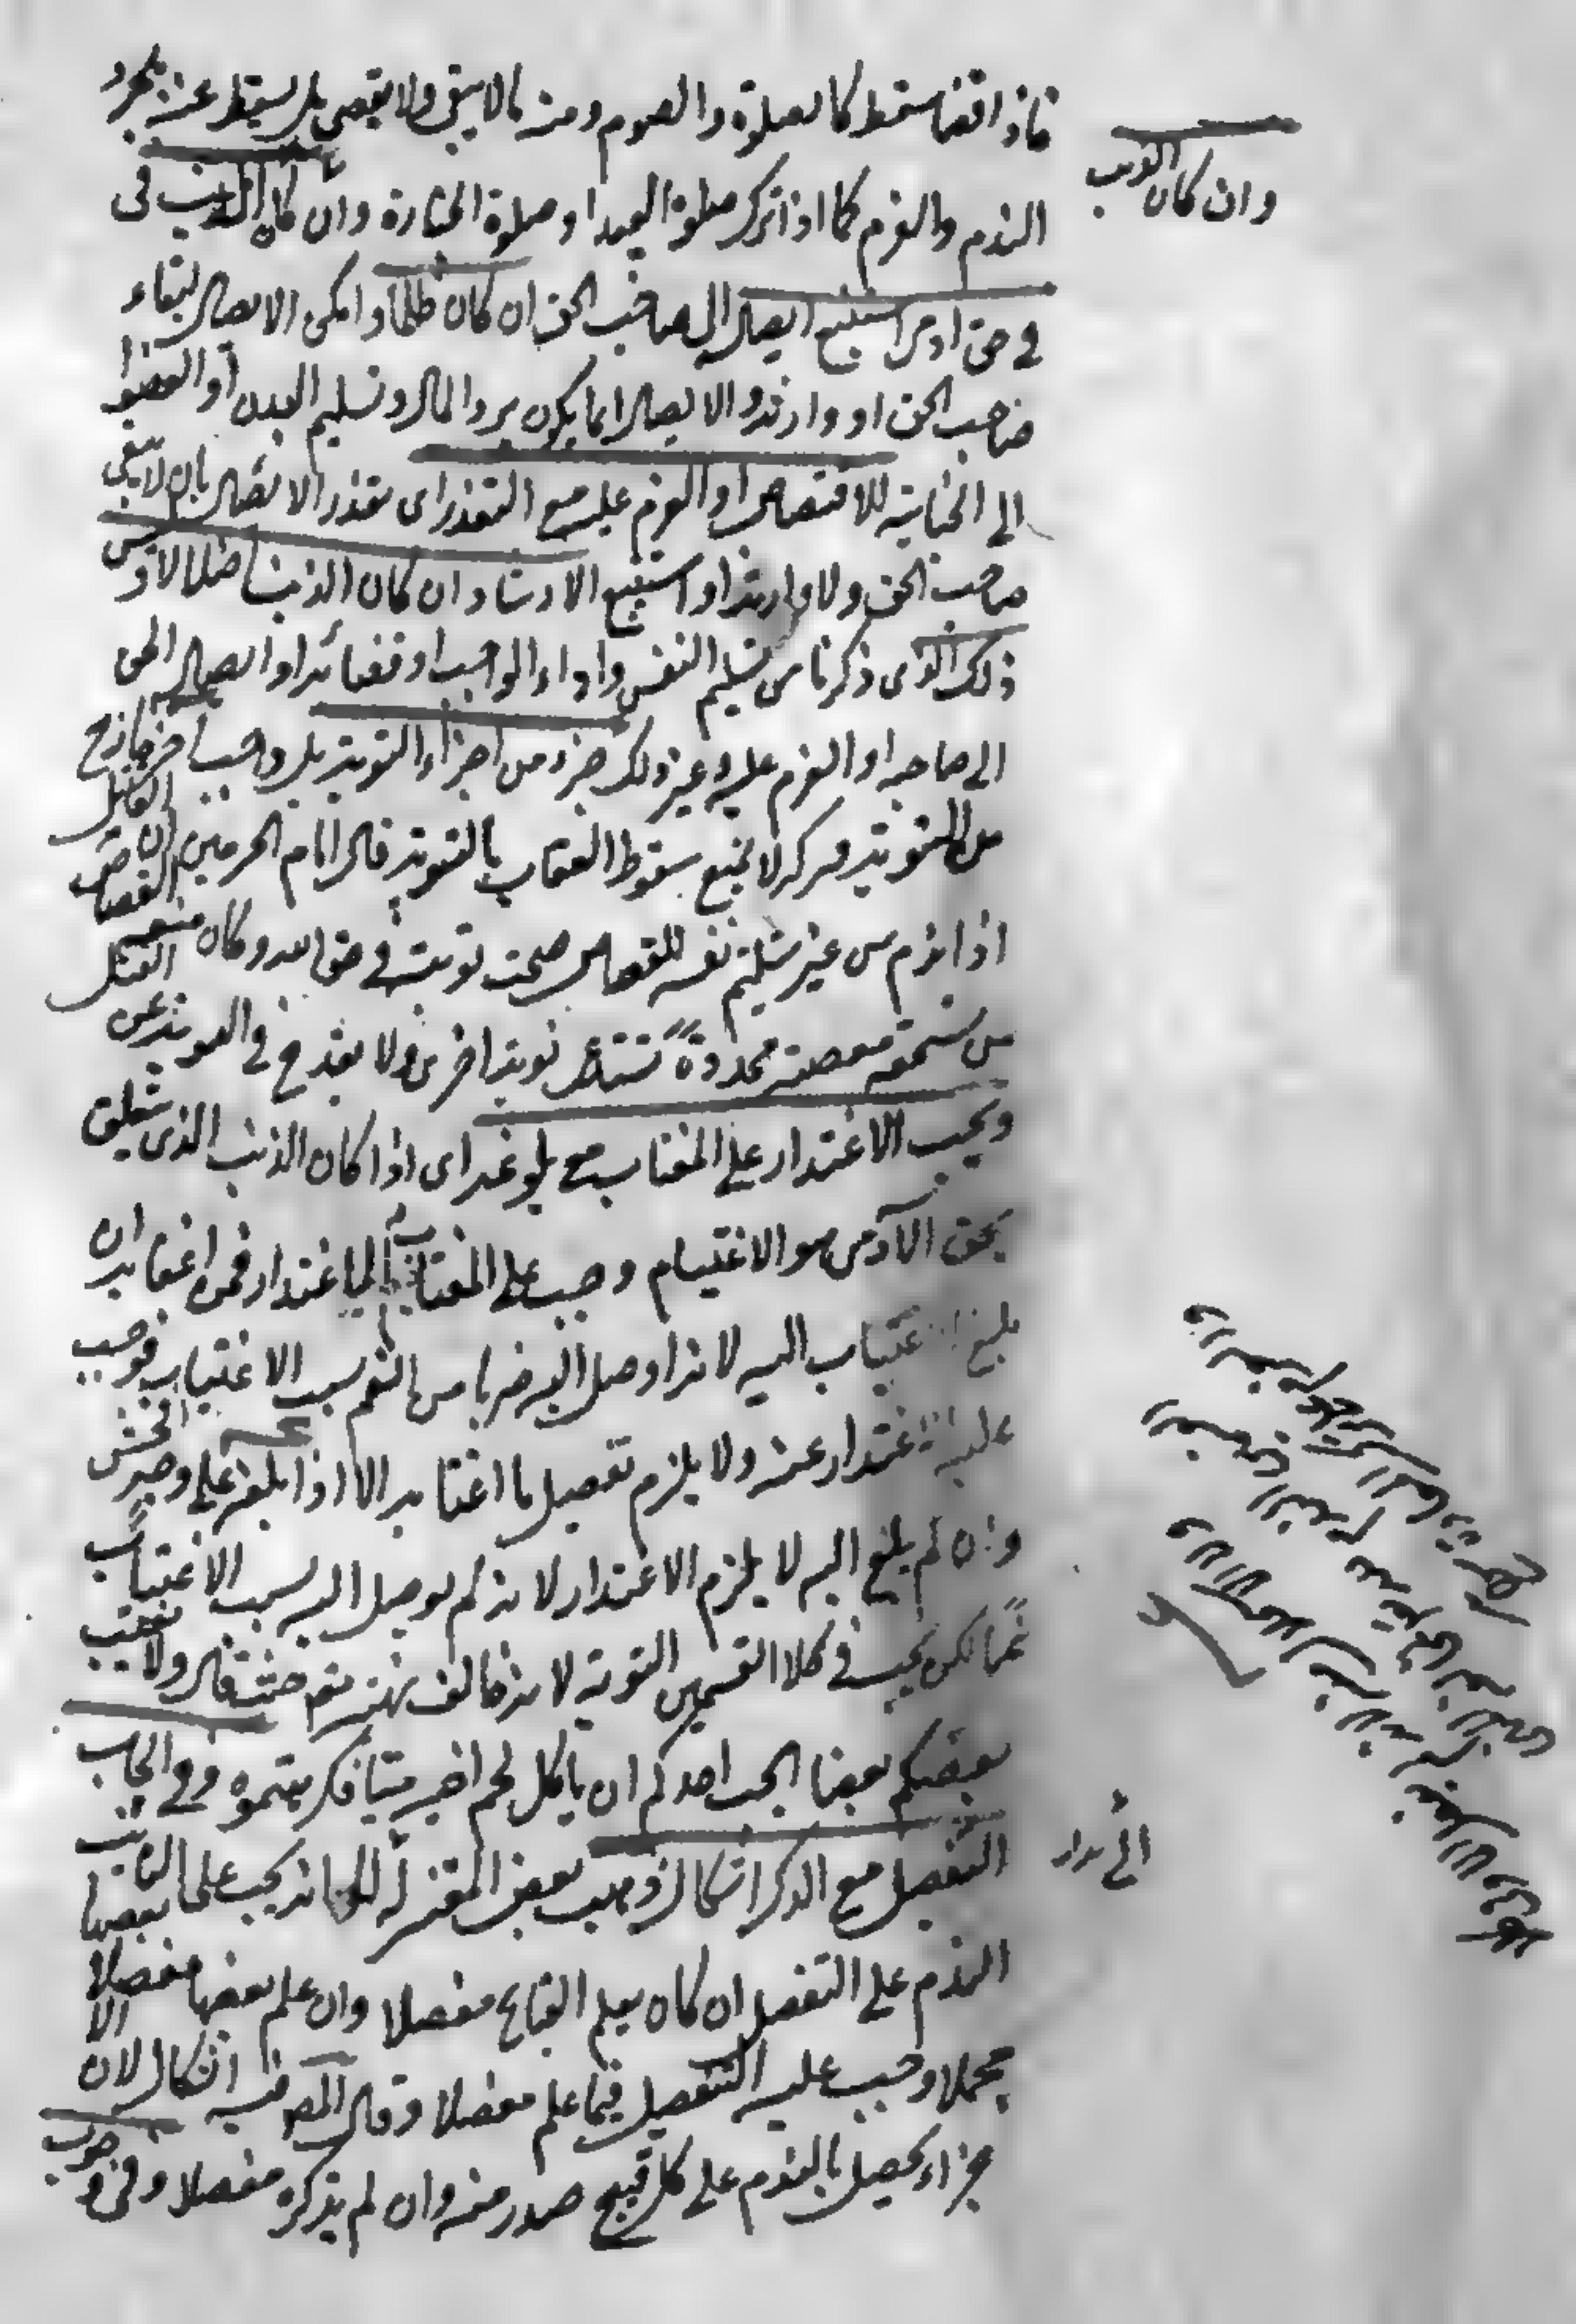 فاذا قضا سقط كالصلوة والصوم ومنه ما لا يبقى ولا يقضى بل يسقط عنه بمجرد
الندم والعزم كما اذا ترك صلوة العيد او صلوة الجنازة وان كان الذنب في
في حق ادمى استتبع ايصاله الى صاحب الحق ان كان ظلما وامكن الايصال لبقاء
صاحب الحق او وارثه والايصال انما يكون برد المال وتسليم البدن او العضو
الى الجناية للاقتصاص او العزم عليه مع التعذر اى تعذر الايصال بان لا يبقى
صاحب الحق ولا وارثه او استتبع الارشاد ان كان الذنب اضلالا وليس
ذلك الذى ذكرنا من تسليم النفس واداء الواجب او قضائه او ايصال الحق
الى صاحبه او العزم عليه وغير ذلك جزء من اجزاء التوبة بل واجب اخر خارج
من التوبة وتركه لا يمنع سقوط العقاب بالتوبة قال امام الحرمين ان القاتل
اذا ندم من غير تسليم نفسه للقصاص صحت توبته في حق الله وكان منعه القصاص
من مستحقه معصية مجددة تستدعى توبة اخرى ولا يقدح في التوبة عن القتل
ويجب الاعتذار على المغتاب مع بلوغه اى اذا كان الذنب الذى يتعلق
بحق الآدمى هو الاغتياب وجب على المغتاب الاعتذار فمن اغتابه ان
بلغ الاغتياب اليه لانه اوصل اليه ضربا من الغم بسبب الاغتياب فوجب
عليه الاعتذار عنه ولا يلزم تفصيل ما اغتابه الا اذا بلغه على وجه افحش
وان لم يبلغ اليه لا يلزم الاعتذار لانه لم يوصل اليه بسبب الاغتياب
غما لكن يجب في كلا القسمين التوبة لانه خالف نهيه تعه حيث قال ولا يغتب
بعضكم بعضا ايحب احدكم ان ياكل لحم اخيه ميتا فكرهتموه وفي ايجاب
التفصيل مع الذكر اشكال ذهب بعض المعتزلة الى انه يجب على التائب
الندم على التفصيل ان كان يعلم القبائح مفصلا وان علم بعضها مفصلا وبعضها
مجملا وجب عليه التفصيل فيما علم مفصلا وقال المصـ فيه اشكال لان الا
جزاء يحصل بالندم على كل قبيح صدر منه وان لم يذكره مفصلا وفى وجوب
وان كان الذنب